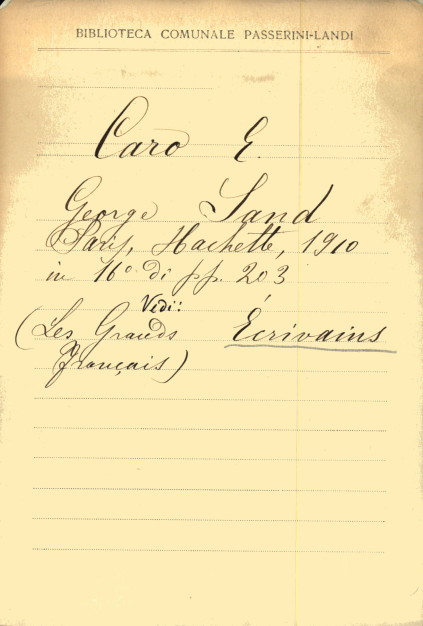 BIBLIOTECA COMUNALE PASSERINI-LANDI
Caro E.
George Sand
Paris, Hachette, 1910
in 16º di pp. 203
Vedi:
(Les Grands Écrivains
Français)